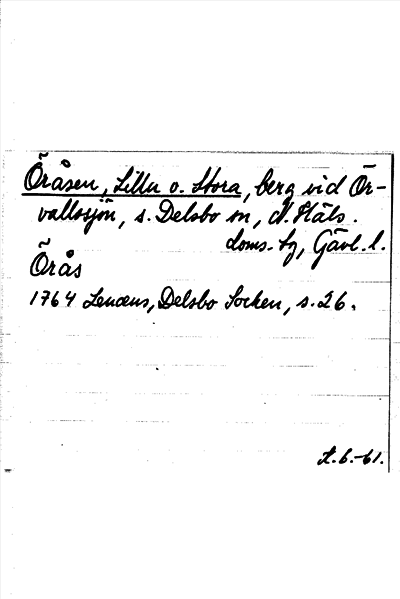 Öråsen, Lilla o. Stora, berg vid Ör-
vallssjön, s. Delsbo sn, d. Häls.
doms. tg, Gävl. l.
Örås
1764 Lenæus, Delsbo Socken, s. 26.
6.-61.